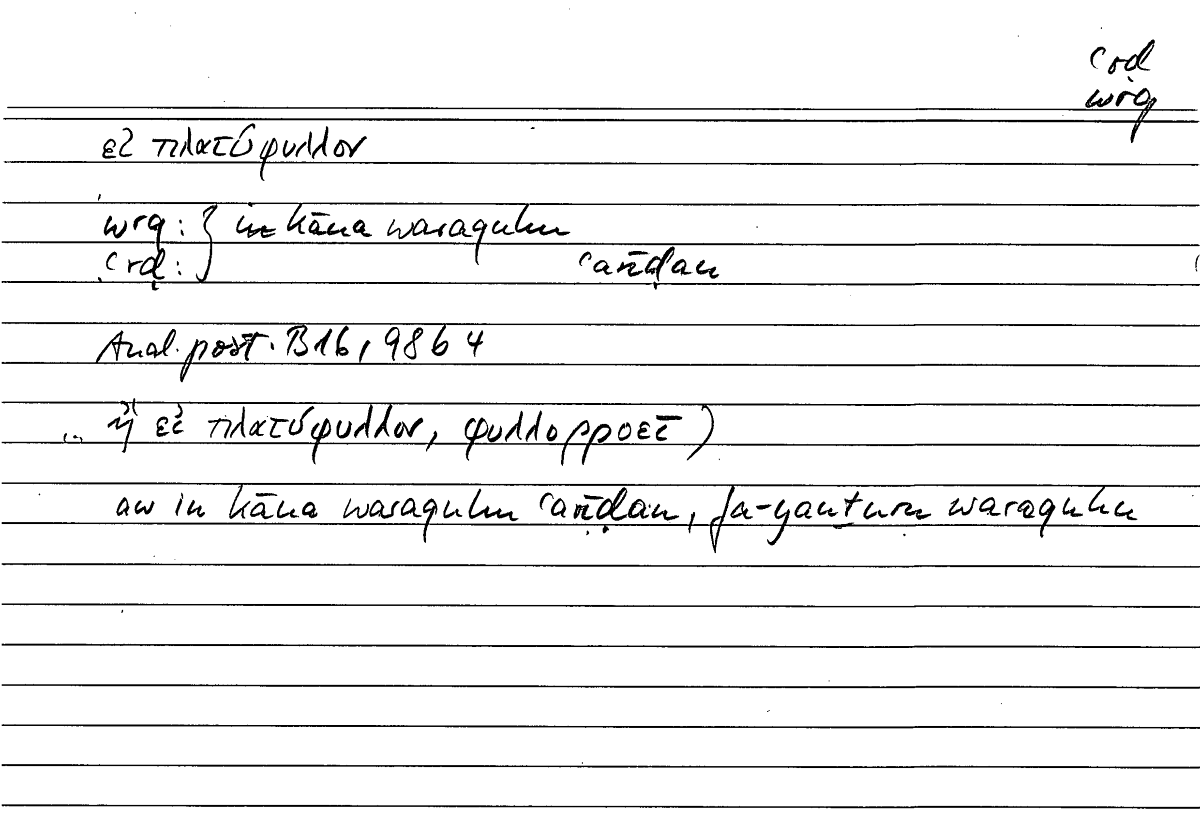 ʿrḍ
wrq
εἰ πλατύφυλλον
wrq : } in kāna waraquhu
ʿrḍ : } ʿarīḍan
Anal. post. B16, 98 b 4
... ἢ εἰ πλατύφυλλον, φυλλορροεῖ )
aw in kāna waraquhu ʿarīḍan, fa-yanṯuru waraquhu